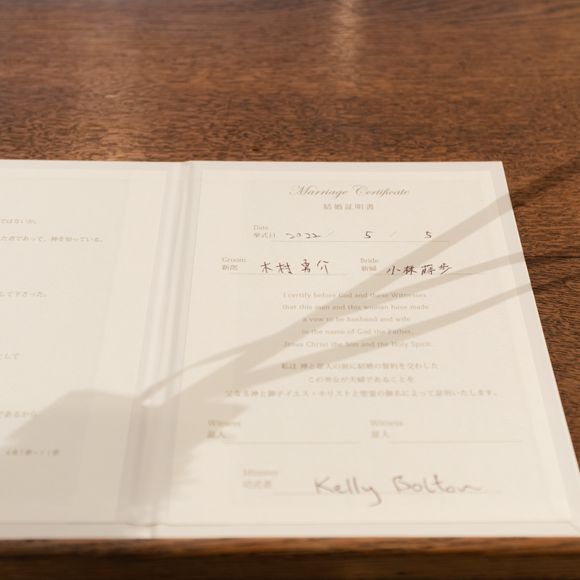 ではないか。
た者であって、神を知っている。
して下さった。
として
であるから
4章7節~11節
Marriage Certificate
結婚証明書
Date
挙式日 2022 / 5 / 5
Groom
新郎 木村勇介
Bride
新婦 小林
I certify before God and these Witnesses
that this man and this woman have made
a vow to be husband and wife
in the name of God the Father,
Jesus Christ the Son and the Holy Spirit.
私は 神と証人の前に結婚の誓約を交わした
この男女が夫婦であることを
父なる神と御子イエス・キリストと聖霊の御名によって証明いたします。
Witness
証人
Witness
証人
Minister
司式者 Kelly Bolton